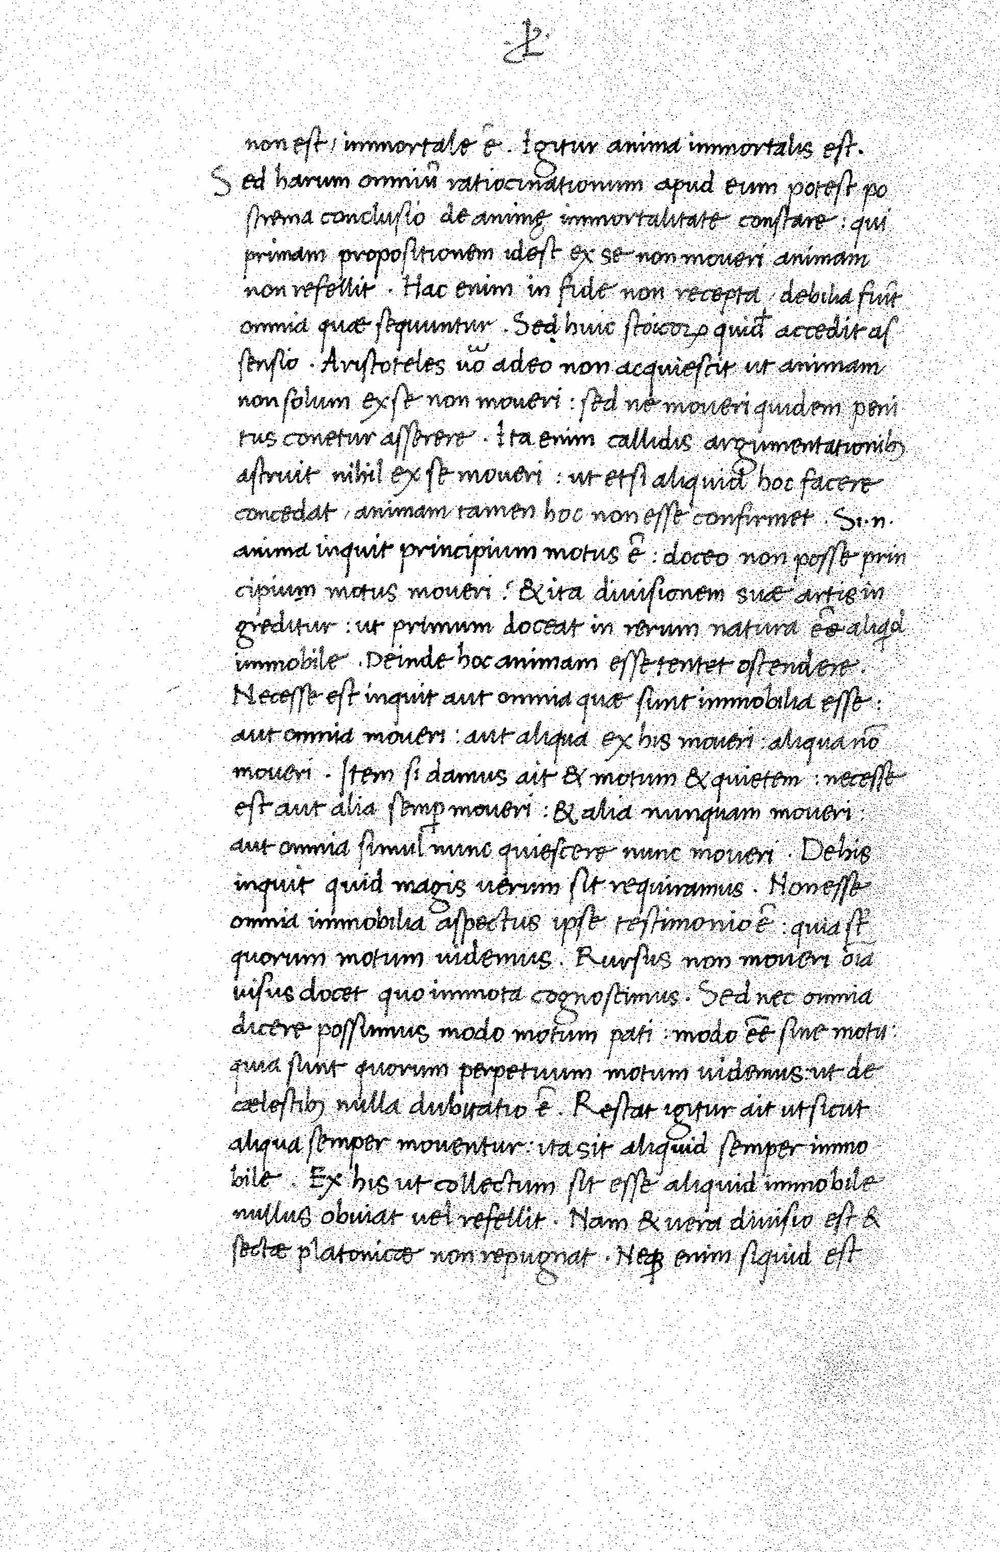 non est / immortale ē . Igitur anima immortalis est.
Sed harum omniū ratiocinationum apud eum potest po
strema conclusio de animę immortalitate constare : qui
primam propositionem idest ex se non moveri animam
non refellit . Hac enim in fide non recepta / debilia fiūt
omnia quæ sequuntur . Sed huic stoicoꝝ quid̄ accedit as
sensio . Aristoteles uō adeo non acquiescit ut animam
non solum ex se non moveri : sed ne moveri quidem peni
tus conetur asserere . Ita enim callidis argumentationibꝫ
astruit nihil ex se moveri : ut etsi aliquid hoc facere
concedat / animam tamen hoc non esse confirmet . Si .n.
anima inquit principium motus ē : doceo non posse prin
cipium motus moveri : & ita divisionem suæ artis in
greditur : ut primum doceat in rerum natura ēē aliqd
immobile . Deinde hoc animam esse tentet ostendere .
Necesse est inquit aut omnia quæ sunt immobilia esse :
aut omnia moveri : aut aliqua ex his moveri : aliqua nō
moveri . Item si damus ait & motum & quietem : necesse
est aut alia semꝑ moveri : & alia nunquam moveri :
aut omnia simul nunc quiescere nunc moveri . De his
inquit quid magis uerum sit requiramus . Non esse
omnia immobilia aspectus ipse testimonio ē : quia st̄
quorum motum uidemus . Rursus non moveri oīa
visus docet quo immota cognoscimus . Sed nec omnia
dicere possumus modo motum pati : modo ēē sine motu :
quia sunt quorum perpetuum motum uidemus : ut de
cælestibꝫ nulla dubitatio ē . Restat igitur ait ut sicut
aliqua semper moventur : ita sit aliquid semper immo
bile . Ex his ut collectum sit esse aliquid immobile
nullus obviat uel refellit . Nam & vera divisio est &
sectæ platonicæ non repugnat . Neqꝫ enim siquid est